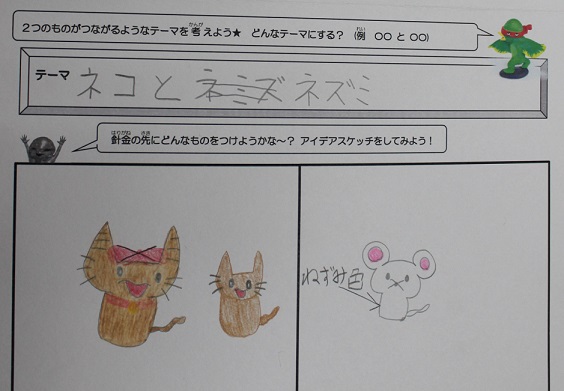 2つのものがつながるようなテーマを考えよう★ どんなテーマにする？ (例 ○○と○○)
テーマ ネコと ネミズ ネズミ
針金の先にどんなものをつけようかな～？ アイデアスケッチをしてみよう！
ねずみ色